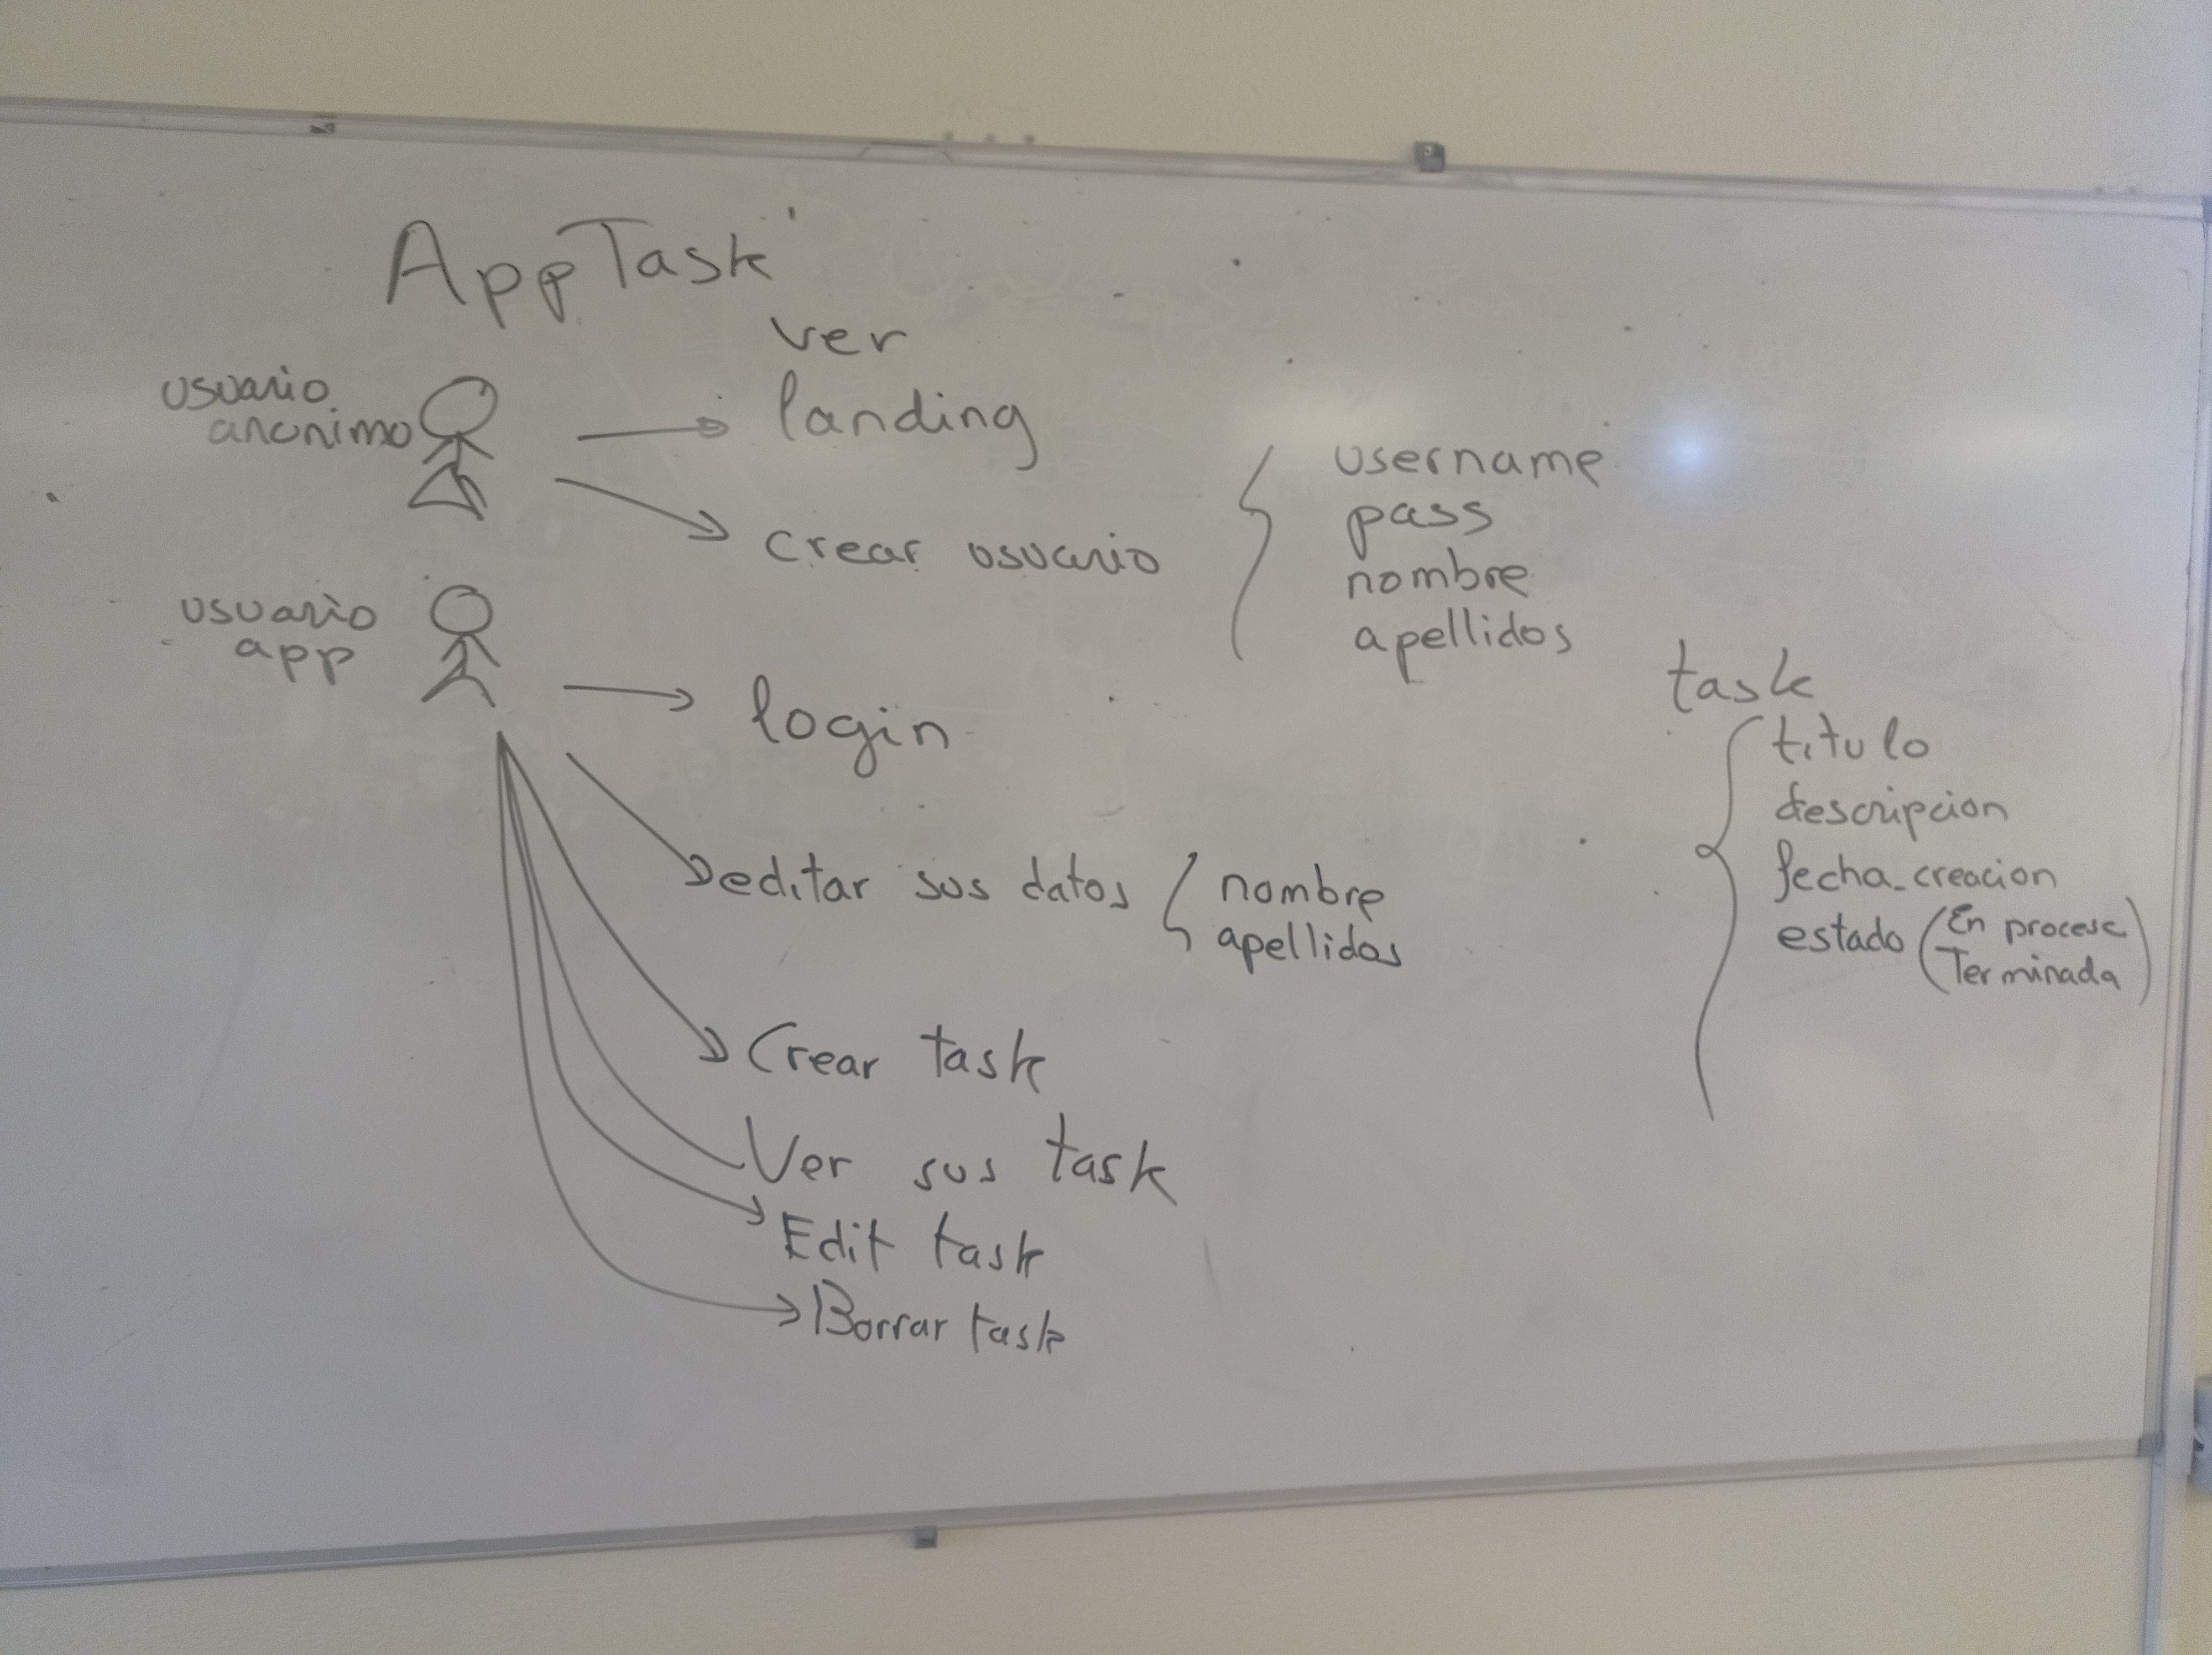 AppTask
usuario
anonimo
ver
landing
crear usuario
username
pass
nombre
apellidos
usuario
app
login
editar sus datos
nombre
apellidos
Crear task
Ver sus task
Edit task
Borrar task
task
titulo
descripcion
fecha_creacion
estado (En proceso
Terminada)